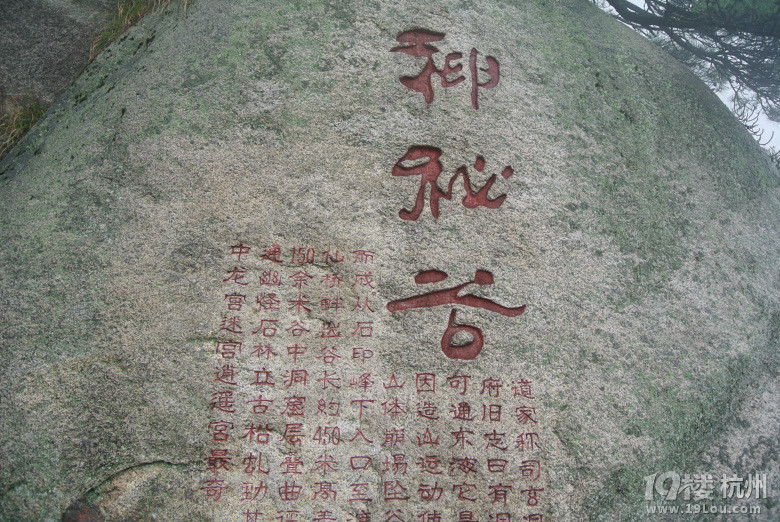 神秘谷
道家称司玄洞
府旧志曰有洞
可通东海它是
因造山运动使
山体崩塌坠谷
而成从石印峰下入口至渡
仙桥畔出谷长约450米高差
150余米谷中洞窟层叠曲径
通幽怪石林立古松虬劲
中龙宫迷宫逍遥宫最奇
19楼杭州
www.19lou.com